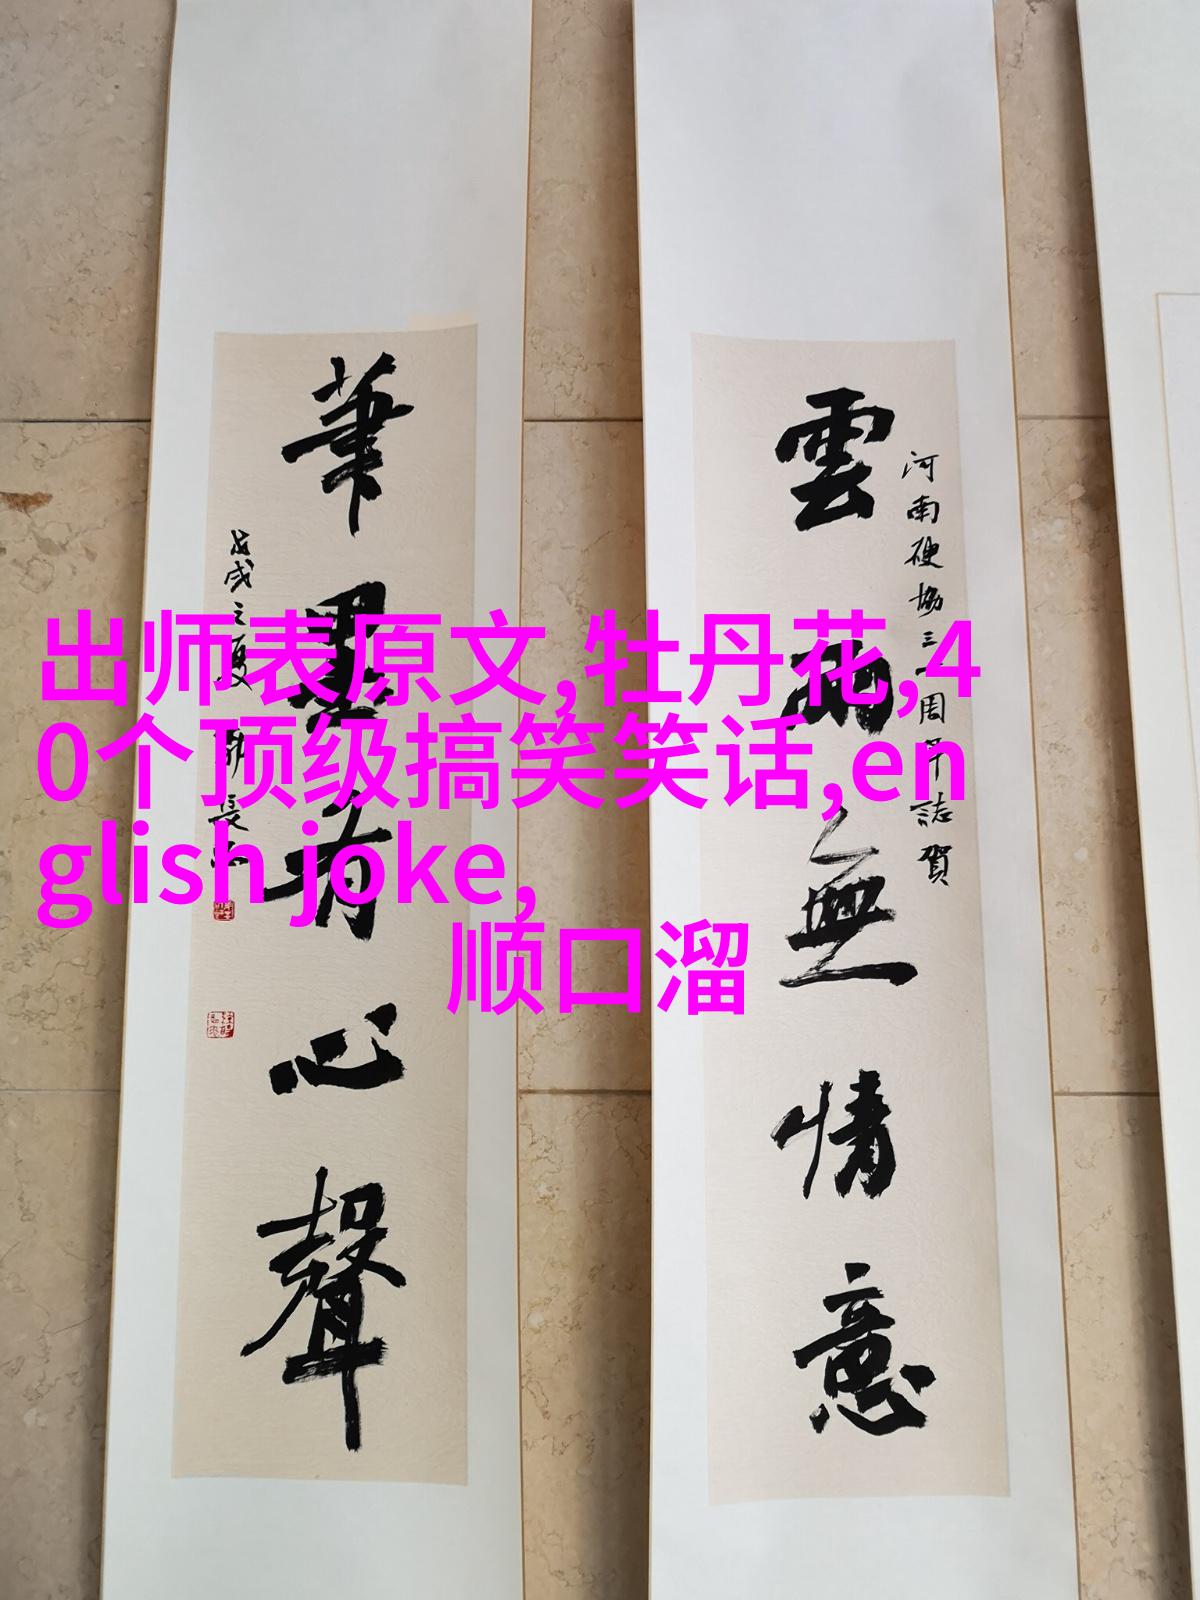 雲雨無情意
河南硬協三周年誌賀
筆墨有心聲
戊戌之夏
出师表原文,牡丹花,4
0个顶级搞笑笑话,en
glish joke,
顺口溜